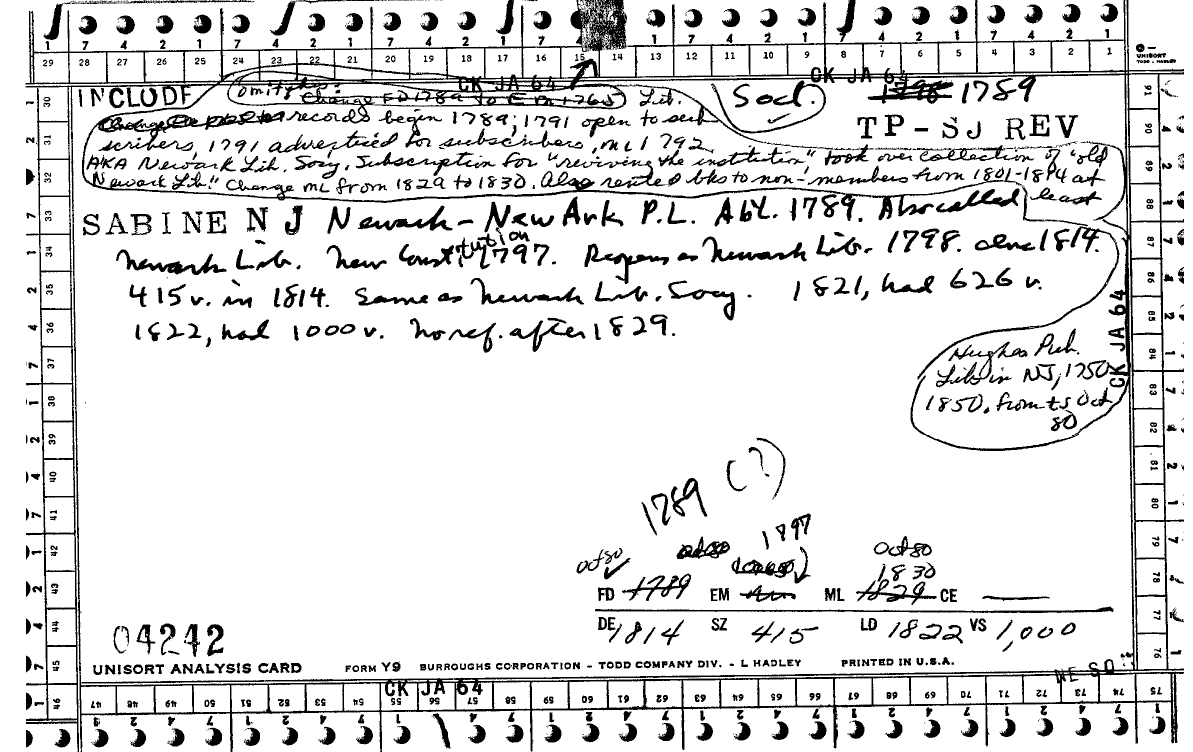 1 7 4 2 1 7 4 2 1 7 4 2 1 7 4 1 7 4 2 1 7 4 2 1 7 4 2 1
29 28 27 26 25 24 23 22 21 20 19 18 17 16 15 14 13 12 11 10 9 8 7 6 5 4 3 2 1
UNISORT
TODD - HADLEY
CK JA 64 CK JA 64
INCLUDE omit Change FD 1789 to EM 1765 Lib. Socl. 1798 1789
records begin 1789; 1791 open to sub
TP-SJ REV
scribers, 1791 advertised for subscribers, ML 1792.
AKA Newark Lib. Socy. Subscription for "reviving the institution" took over collection of "old
Newark Lib." Change ML from 1829 to 1830. Also rented bks to non-members from 1801-1814 at
least
SABINE N J Newark - New Ark P.L. Abt. 1789. Also called
Newark Lib. New Constitution 1797. Reopens as Newark Lib. 1798. since 1814.
415 v. in 1814. Same as Newark Lib. Socy. 1821, had 626 v.
1822, had 1000 v. No ref. after 1829.
CK JA 64
Hughes Pub.
Libs in NJ, 1750
1850. from ts Oct
80
1789 (?)
1797
Oct 80 Oct 80 Oct 80
1830
FD 1789 EM ML 1829 CE —
DE 1814 SZ 415 LD 1822 VS 1,000
04242
UNISORT ANALYSIS CARD FORM Y9 BURROUGHS CORPORATION - TODD COMPANY DIV. - L HADLEY PRINTED IN U.S.A.
NE SO
CK JA 64
47 48 49 50 51 52 53 54 55 56 57 58 59 60 61 62 63 64 65 66 67 68 69 70 71 72 73 74 75